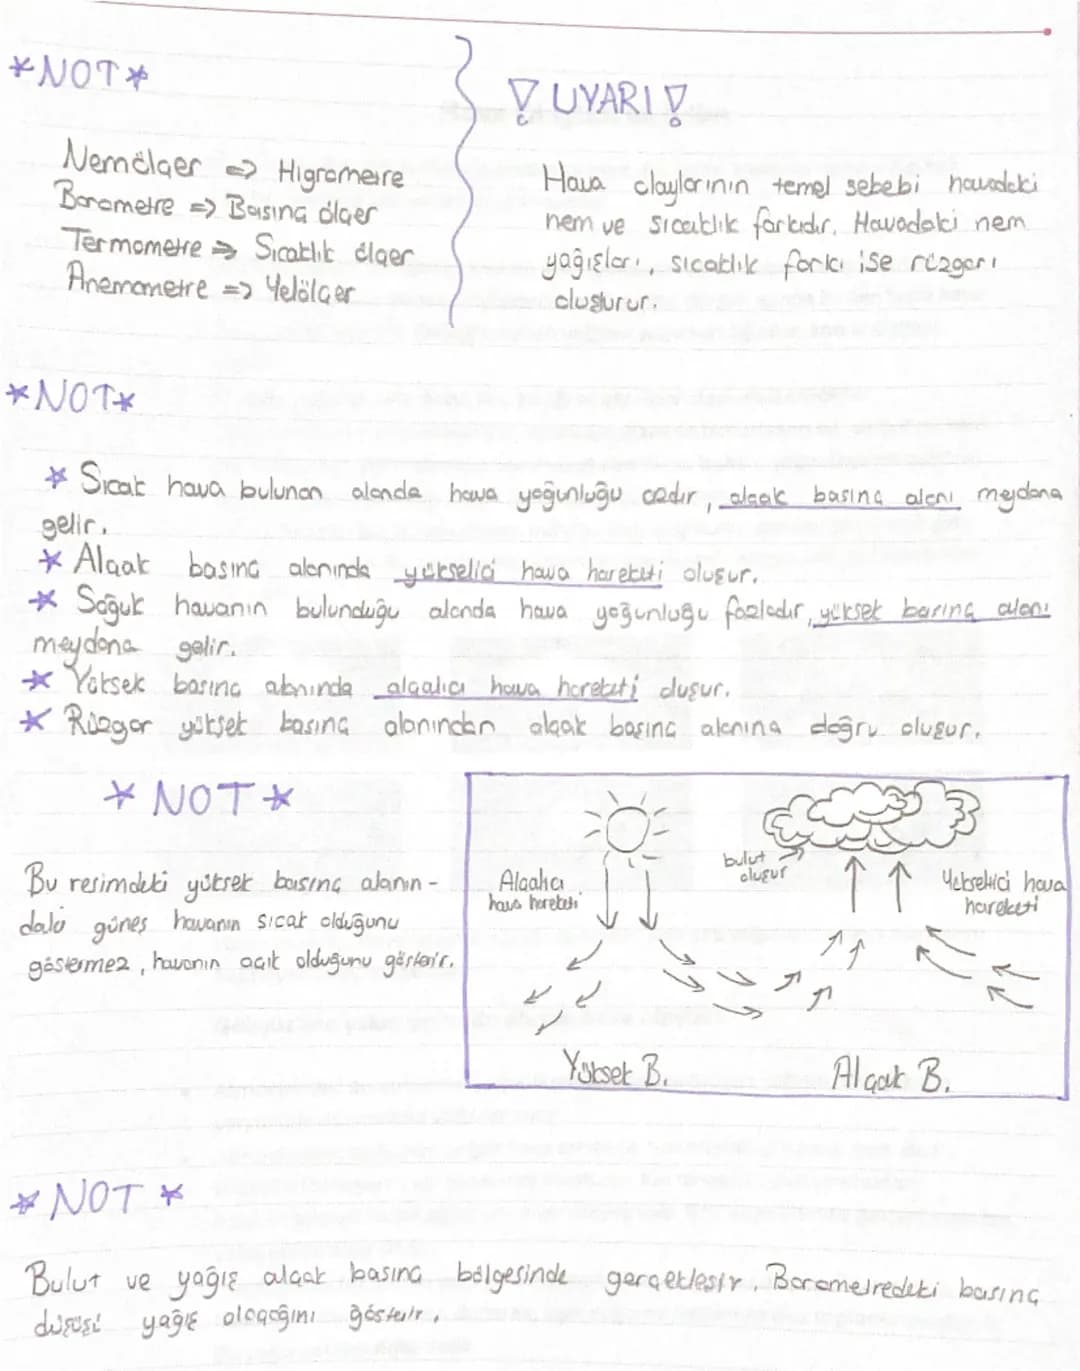 *NOT*
Nemölçer => Higrometre
Barometre => Basınç ölçer
Termometre => Sıcaklık ölçer
Anemometre => Yelölçer
! UYARI !
Hava olaylarının temel sebebi havadaki
nem ve sıcaklık farkıdır. Havadaki nem
yağışları, sıcaklık farkı ise rüzgarı
oluşturur.
*NOT*
* Sıcak hava bulunan alanda hava yoğunluğu azdır, alçak basınç alanı meydana
gelir.
* Alçak basınç alanında yükselici hava hareketi oluşur.
* Soğuk havanın bulunduğu alanda hava yoğunluğu fazladır, yüksek basınç alanı
meydana gelir.
* Yüksek basınç alanında alçalıcı hava hareketi oluşur.
* Rüzgar yüksek basınç alanından alçak basınç alanına doğru oluşur.
* NOT *
Bu resimdeki yüksek basınç alanın-
daki güneş havanın sıcak olduğunu
göstermez, havanın açık olduğunu gösterir.
Alçalıcı
hava hareketi
bulut
oluşur
Yükselici hava
hareketi
Yüksek B.
Alçak B.
* NOT *
Bulut ve yağış alçak basınç bölgesinde gerçekleşir. Barometredeki basınç
düşüşü yağış olacağını gösterir.